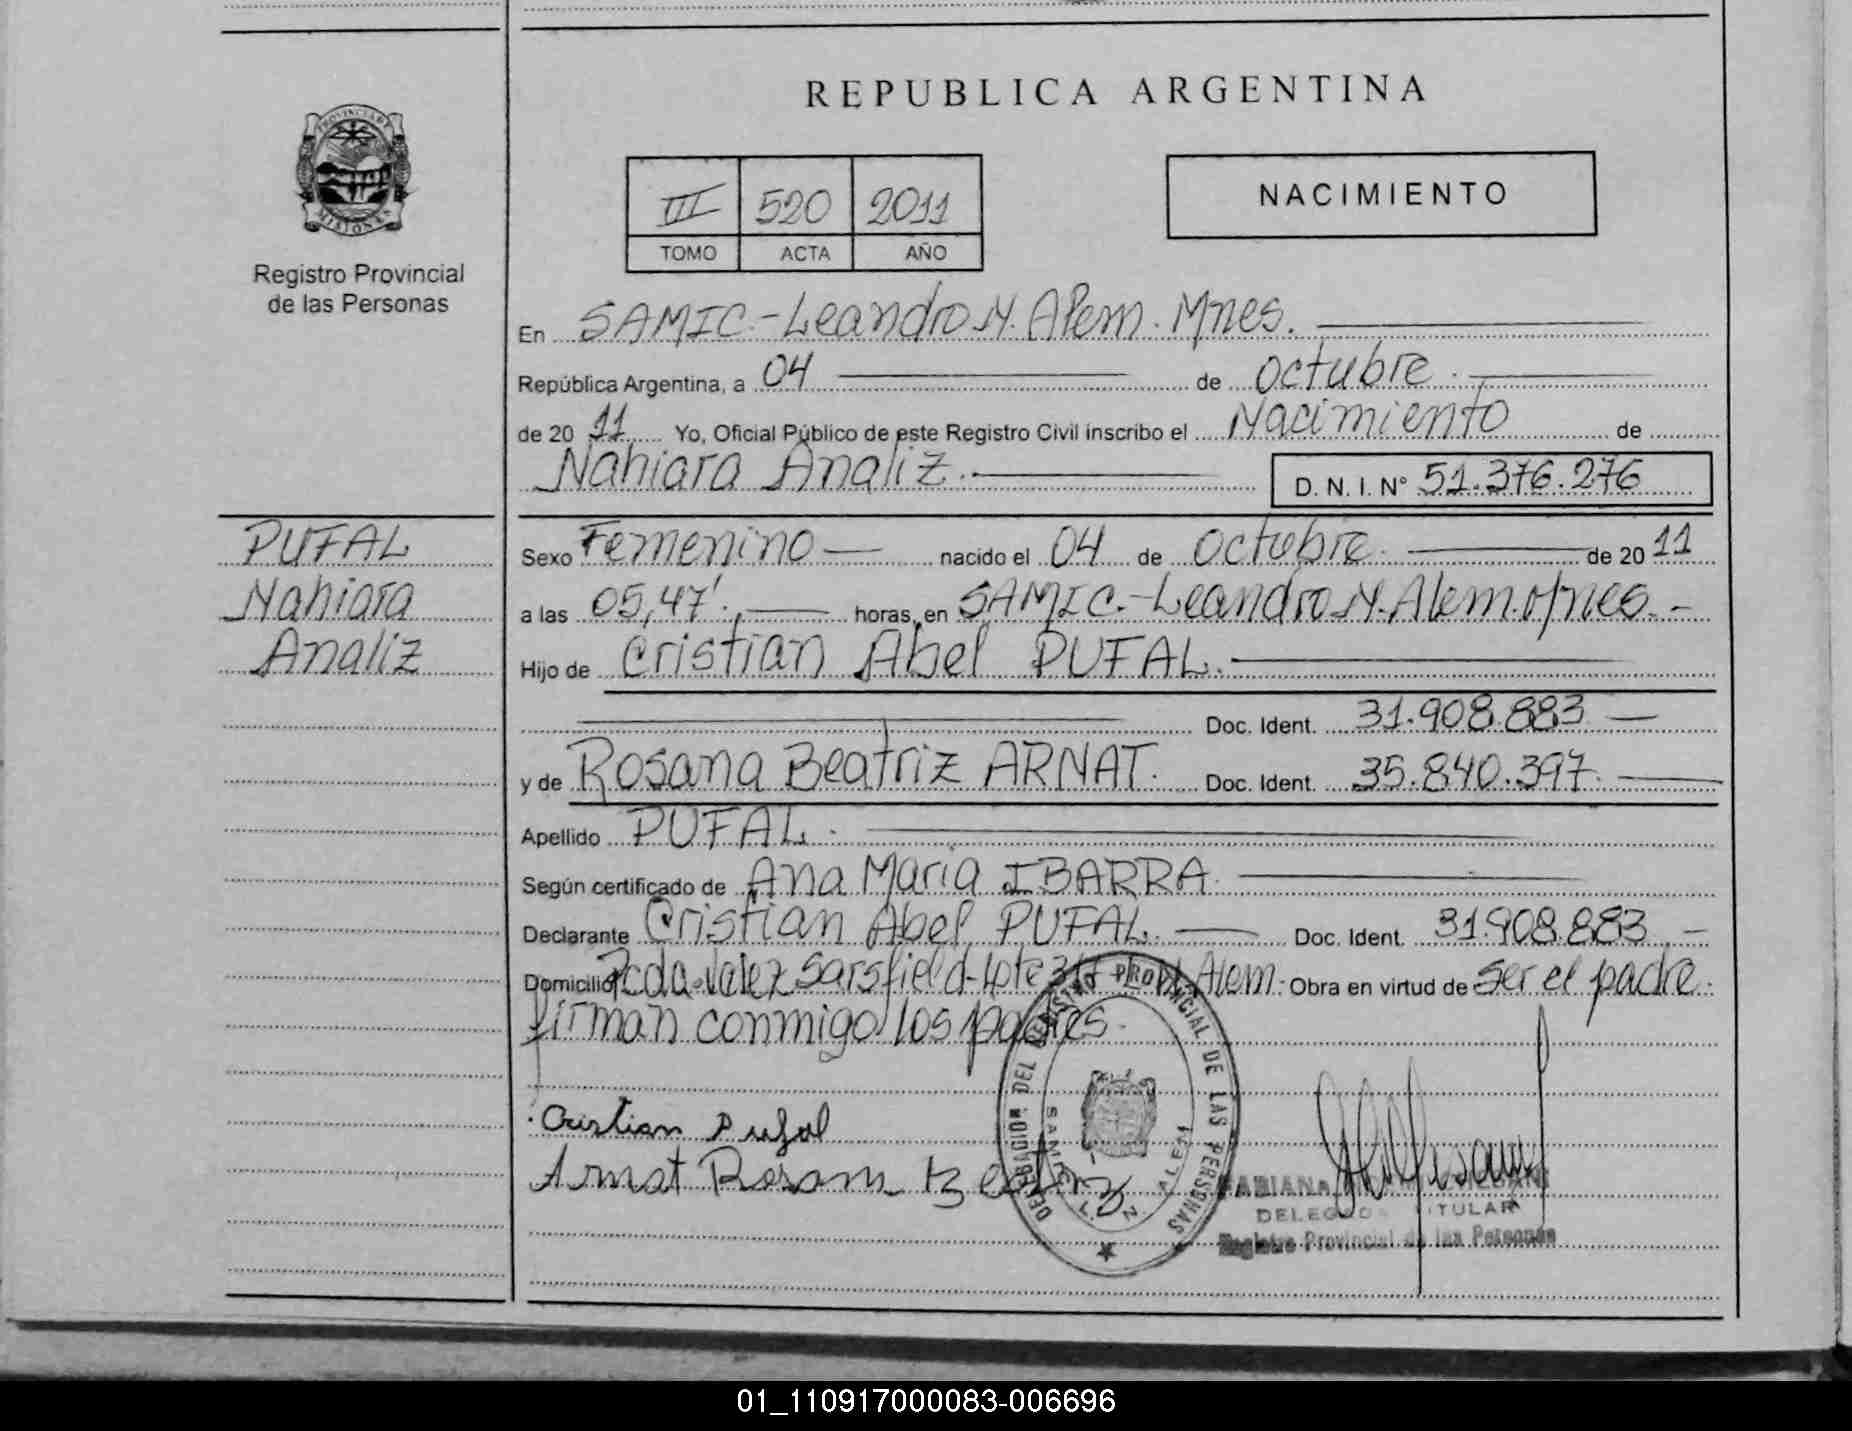 REPUBLICA ARGENTINA
PROVINCIA DE
MISIONES
Registro Provincial
de las Personas
III 520 2011
TOMO ACTA AÑO
NACIMIENTO
En SAMIC.-Leandro N. Alem. Mnes.
República Argentina, a 04 de octubre.
de 20 11 Yo, Oficial Público de este Registro Civil inscribo el Nacimiento de
Nahiara Analiz.
D. N. I. N° 51.376.276
PUFAL
Nahiara
Analiz
Sexo Femenino nacido el 04 de octubre. de 20 11
a las 05,47'. horas, en SAMIC.-Leandro N. Alem. Mnes.-
Hijo de Cristian Abel PUFAL.
Doc. Ident. 31.908.883
y de Rosana Beatriz ARNAT. Doc. Ident. 35.840.397.
Apellido PUFAL.
Según certificado de Ana Maria IBARRA.
Declarante Cristian Abel PUFAL. Doc. Ident. 31.908.883
Domicilio Velez Sarsfield-Lote Alem. Obra en virtud de ser el padre.
firman conmigo los padres.
Cristian Pufal
Arnat Rosana Beatriz
DELEGACION DEL REGISTRO PROVINCIAL DE LAS PERSONAS
SAMIC L. N. ALEM
FABIANA
DELEGADA TITULAR
Registro Provincial de las Personas
01_110917000083-006696